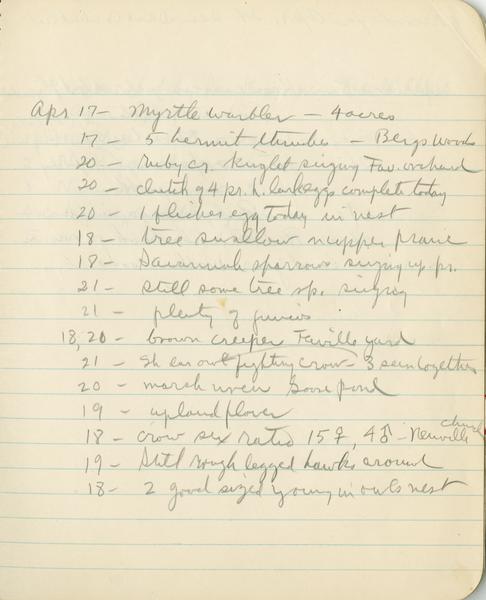 Apr 17 - Myrtle warbler - 4 acres
17 - 5 hermit thrushes - Bergs Woods
20 - ruby cr. kinglet singing Fav. orchard
20 - clutch of 4 pr. h. lark eggs complete today
20 - 1 flicker egg today in nest
18 - tree swallow n upper prairie
18 - Savannah sparrows singing up pr.
21 - still some tree sp. singing
21 - plenty of juncos
18, 20 - brown creeper Faville yard
21 - Sh ear owl fighting crow - 3 seen together
20 - marsh wren Goose Pond
19 - upland plover
18 - crow sex ratio 15♀, 4♂ - Neuville church
19 - Still rough legged hawks around
18 - 2 good sized young in owls nest